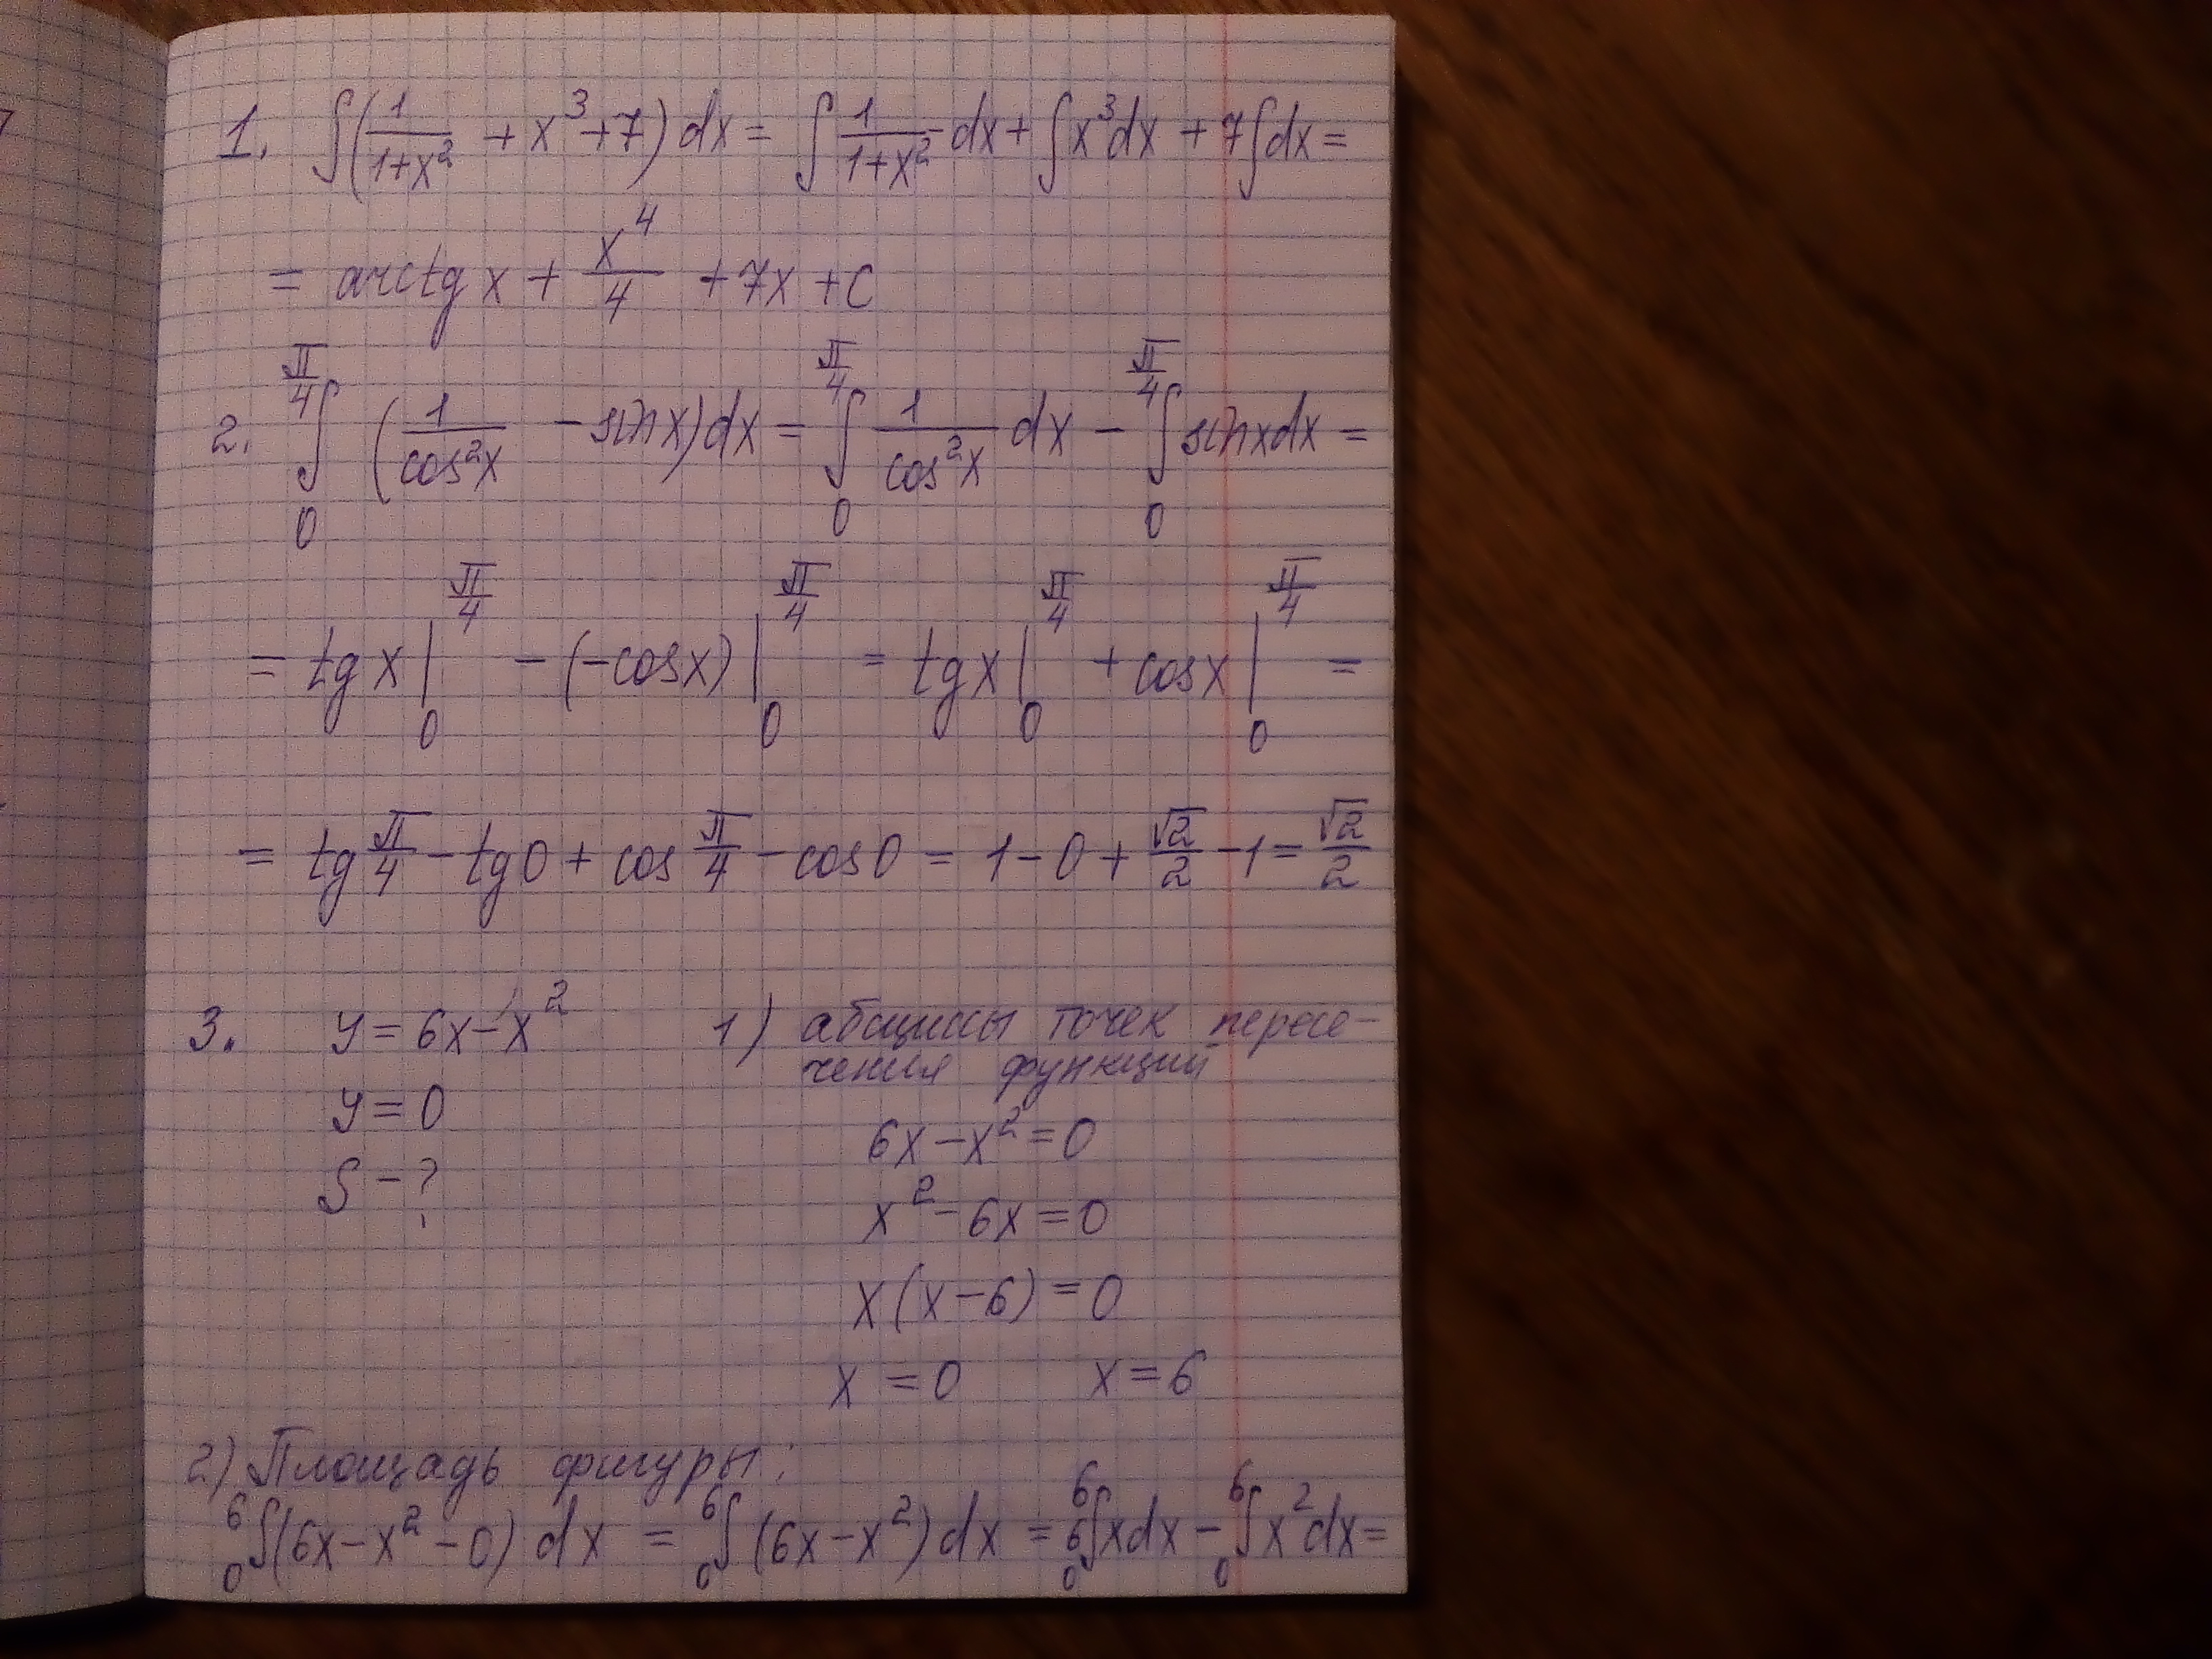 1. ∫(1/(1+x²) + x³+7) dx = ∫ 1/(1+x²) dx + ∫x³dx + 7∫dx =
= arctg x + x⁴/4 + 7x + C
2. ∫₀^(π/4) (1/cos²x - sin x)dx = ∫₀^(π/4) 1/cos²x dx - ∫₀^(π/4) sin x dx =
= tg x |₀^(π/4) - (-cos x) |₀^(π/4) = tg x |₀^(π/4) + cos x |₀^(π/4) =
= tg π/4 - tg 0 + cos π/4 - cos 0 = 1 - 0 + √2/2 - 1 = √2/2
3. y = 6x - x² 1) абсциссы точек пересе-
чения функций
y = 0
6x - x² = 0
S - ?
x² - 6x = 0
x(x-6) = 0
x = 0 x = 6
2) Площадь фигуры:
₀⁶∫(6x - x² - 0) dx = ₀⁶∫(6x - x²) dx = 6 ₀⁶∫xdx - ₀⁶∫x²dx =